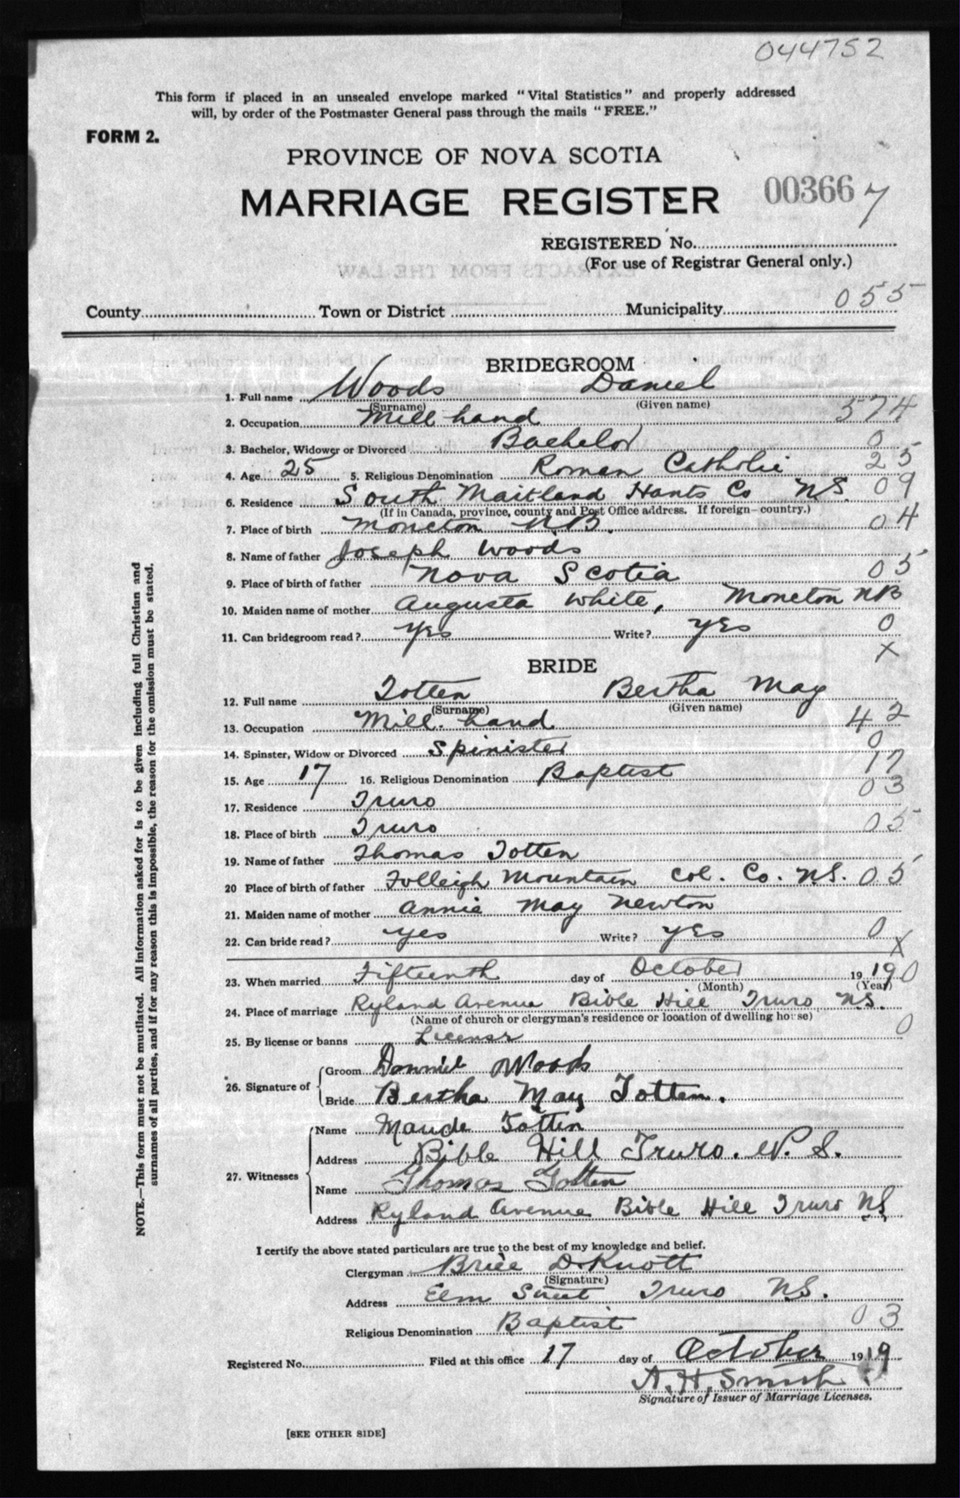 044752
This form if placed in an unsealed envelope marked "Vital Statistics" and properly addressed
will, by order of the Postmaster General pass through the mails "FREE."
FORM 2.
PROVINCE OF NOVA SCOTIA
MARRIAGE REGISTER 003667
REGISTERED No.
(For use of Registrar General only.)
County Town or District Municipality 055
BRIDEGROOM
1. Full name Woods Daniel
(Surname) (Given name)
2. Occupation Mill hand 374
3. Bachelor, Widower or Divorced Bachelor 0
4. Age 25 5. Religious Denomination Roman Catholic 25
6. Residence South Maitland Hants Co NS. 09
(If in Canada, province, county and Post Office address. If foreign—country.)
7. Place of birth Moncton N.B. 04
8. Name of father Joseph Woods
9. Place of birth of father Nova Scotia 05
10. Maiden name of mother Augusta White, Moncton NB
11. Can bridegroom read? Yes Write? Yes 0
X
BRIDE
12. Full name Totten Bertha May
(Surname) (Given name)
13. Occupation Mill. hand 42
14. Spinster, Widow or Divorced Spinister 0
15. Age 17 16. Religious Denomination Baptist 17
17. Residence Truro 03
18. Place of birth Truro 05
19. Name of father Thomas Totten
20 Place of birth of father Folleigh Mountain Col. Co. N.S. 05
21. Maiden name of mother Annie May Newton
22. Can bride read? Yes Write? Yes 0
X
23. When married Fifteenth day of October 1919 0
(Month) (Year)
24. Place of marriage Ryland Avenue Bible Hill Truro N.S.
(Name of church or clergyman's residence or location of dwelling house)
25. By license or banns License 0
26. Signature of Groom Danniel Woods
Bride Bertha May Totten.
27. Witnesses Name Maude Totten
Address Bible Hill Truro. N. S.
Name Thomas Totten
Address Ryland Avenue Bible Hill Truro NS
I certify the above stated particulars are true to the best of my knowledge and belief.
Clergyman Brice D. Knott
(Signature)
Address Elm Street Truro N.S.
Religious Denomination Baptist 03
Registered No. Filed at this office 17 day of October 1919
A. H. Smith
Signature of Issuer of Marriage Licenses.
[SEE OTHER SIDE]
NOTE.—This form must not be mutilated. All information asked for is to be given including full Christian and
surnames of all parties, and if for any reason this is impossible, the reason for the omission must be stated.